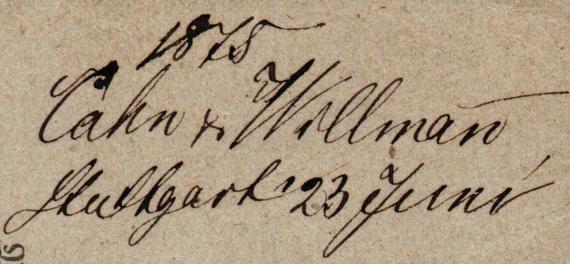 1875
Cahn & Wollman̄
Stuttgart 23 Juni